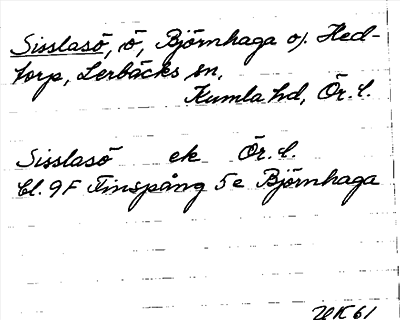 Sisslasö, ö, Björnhaga o/. Hed-
torp, Lerbäcks sn,
Kumla hd, Ör. l.
Sisslasö ek Ör. l.
bl. 9F Finspång 5e Björnhaga
61